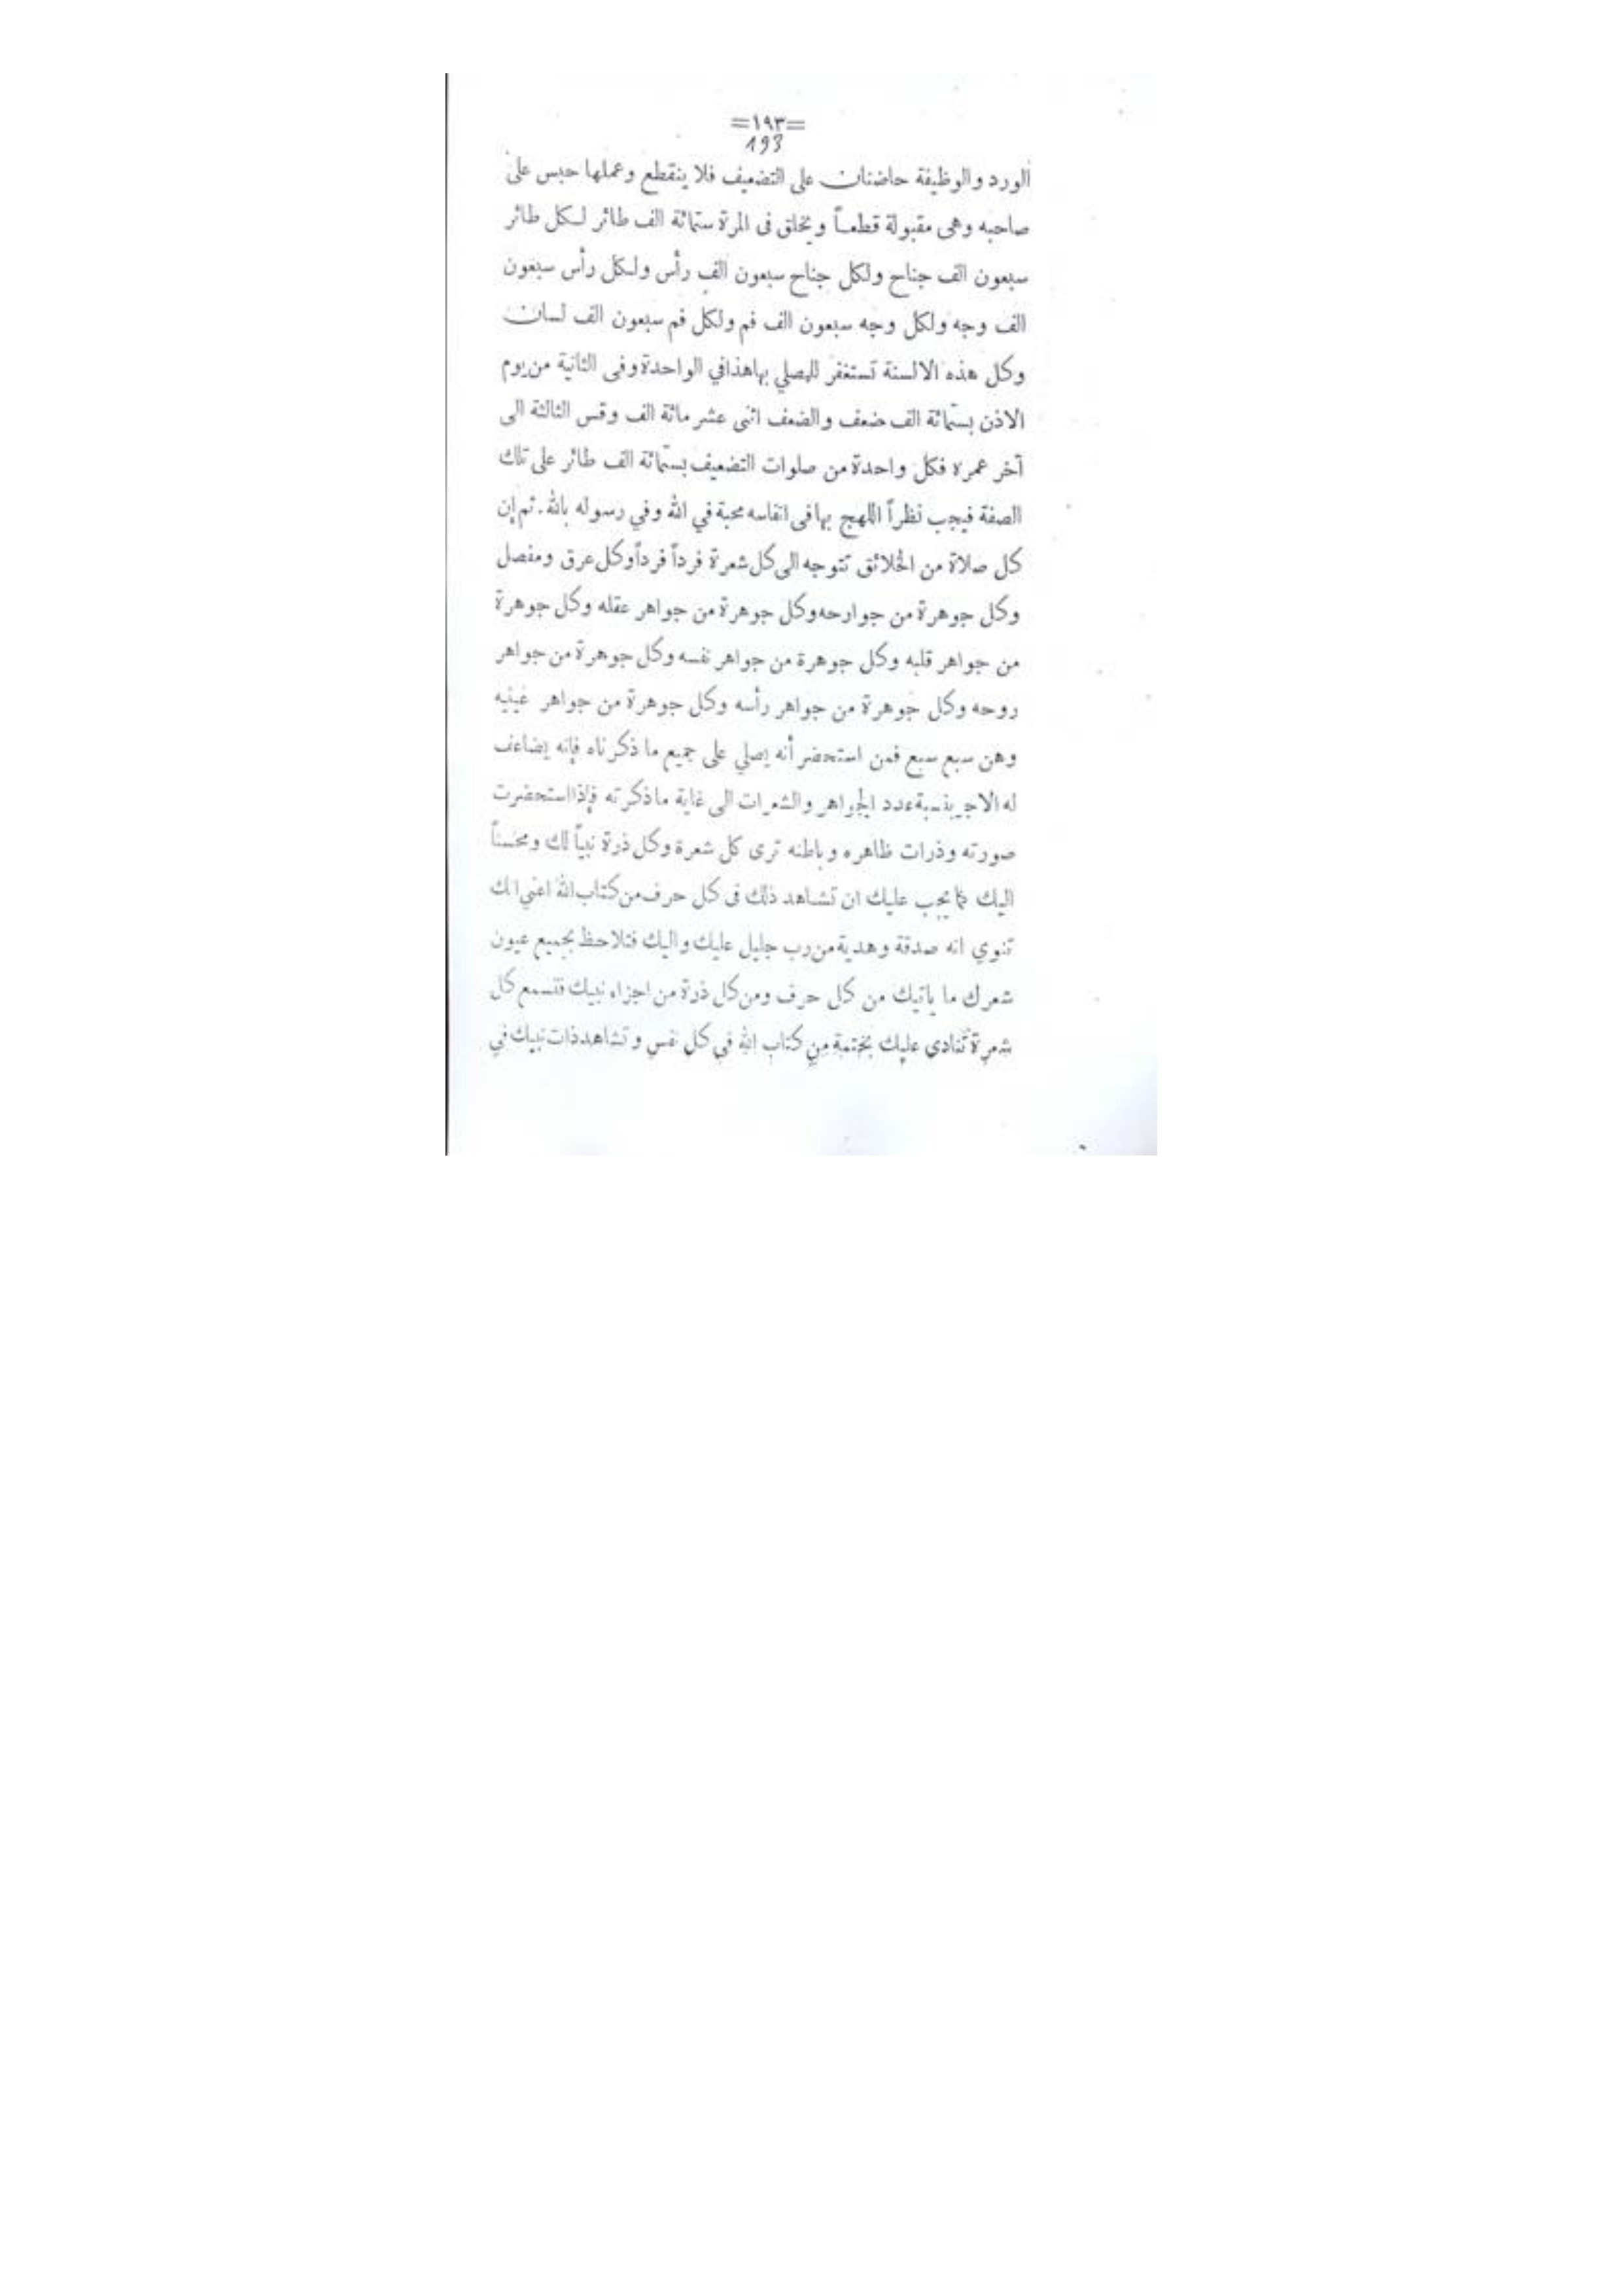 =١٩٣=
193
الورد والوظيفة حاضنان على التضعيف فلا ينقطع وعملها حبس على
صاحبه وهى مقبولة قطعاً ويخلق فى المرة ستمائة الف طائر لكل طائر
سبعون الف جناح ولكل جناح سبعون الف رأس ولكل رأس سبعون
الف وجه ولكل وجه سبعون الف فم ولكل فم سبعون الف لسان
وكل هذه الالسنة تستغفر للمصلي بها هذا في الواحدة وفى الثانية من يوم
الاذن بستمائة الف ضعف والضعف اثنى عشر مائة الف وقس الثالثة الى
آخر عمره فكل واحدة من صلوات التضعيف بستمائة الف طائر على تلك
الصفة فيجب نظراً اللهج بها فى انفاسه محبة في الله وفي رسوله بالله . ثم إن
كل صلاة من الخلائق تتوجه الى كل شعرة فرداً فرداً وكل عرق ومفصل
وكل جوهرة من جوارحه وكل جوهرة من جواهر عقله وكل جوهرة
من جواهر قلبه وكل جوهرة من جواهر نفسه وكل جوهرة من جواهر
روحه وكل جوهرة من جواهر رأسه وكل جوهرة من جواهر عينيه
وهن سبع سبع فمن استحضر أنه يصلي على جميع ما ذكرناه فإنه يضاعف
له الاجر بنسبة عدد الجواهر والشعرات الى غاية ما ذكرته فإذا استحضرت
صورته وذرات ظاهره وباطنه ترى كل شعرة وكل ذرة نبياً لك ومحسناً
اليك فما يجب عليك ان تشاهد ذلك فى كل حرف من كتاب الله اعني انك
تنوي انه صدقة وهدية من رب جليل عليك واليك فتلاحظ بجميع عيون
شعرك ما ياتيك من كل حرف ومن كل ذرة من اجزاء نبيك فتسمع كل
شعرة تنادى عليك بختمة من كتاب الله في كل نفس وتشاهد ذات نبيك في